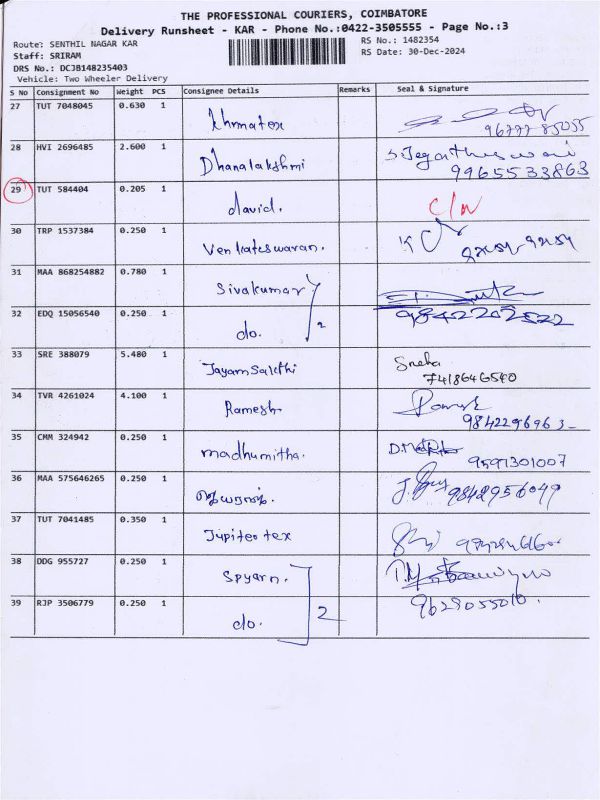 THE PROFESSIONAL COURIERS, COIMBATORE
Delivery Runsheet - KAR - Phone No.:0422-3505555 - Page No.:3
Route: SENTHIL NAGAR KAR
RS No.: 1482354
Staff: SRIRAM
RS Date: 30-Dec-2024
DRS No.: DCJB148235403
Vehicle: Two Wheeler Delivery
S No Consignment No Weight PCS Consignee Details Remarks Seal & Signature
27 TUT 7048045 0.630 1
96777 85055
28 HVI 2696485 2.600 1 Dhanalakshmi
9965533863
29 TUT 584404 0.205 1 david.
30 TRP 1537384 0.250 1 Venkateswaran.
31 MAA 868254882 0.780 1 Sivakumar
32 EDQ 15056540 0.250 1 do. 2
33 SRE 388079 5.480 1 Jayamsakthi Sneha
7418646540
34 TVR 4261024 4.100 1 Ramesh
9842296963
35 CMM 324942 0.250 1 madhumitha.
9591301007
36 MAA 575646265 0.250 1 9842956049
37 TUT 7041485 0.350 1 Jupiter tex
38 DDG 955727 0.250 1 Spyarn.
39 RJP 3506779 0.250 1 do. 2
9629055010.